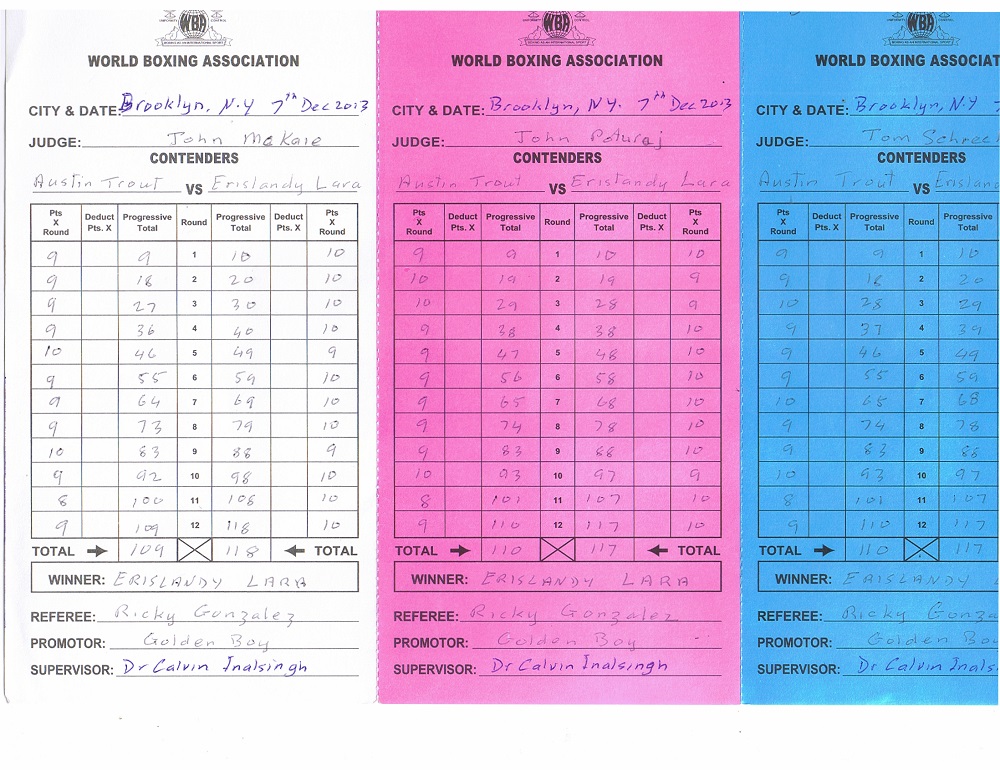 WBA
WORLD BOXING ASSOCIATION
CITY & DATE: Brooklyn, N.Y 7th Dec 2013
JUDGE: John McKaie
CONTENDERS
Austin Trout VS Erislandy Lara
Pts X Round Deduct Pts. X Progressive Total Round Progressive Total Deduct Pts. X Pts X Round
9 9 1 10 10
9 18 2 20 10
9 27 3 30 10
9 36 4 40 10
10 46 5 49 9
9 55 6 59 10
9 64 7 69 10
9 73 8 79 10
10 83 9 88 9
9 92 10 98 10
8 100 11 108 10
9 109 12 118 10
TOTAL 109 118 TOTAL
WINNER: ERISLANDY LARA
REFEREE: Ricky Gonzalez
PROMOTOR: Golden Boy
SUPERVISOR: Dr Calvin Inalsingh
WBA
WORLD BOXING ASSOCIATION
CITY & DATE: Brooklyn, NY. 7th Dec 2013
JUDGE: John Poturaj
CONTENDERS
Austin Trout VS Erislandy Lara
Pts X Round Deduct Pts. X Progressive Total Round Progressive Total Deduct Pts. X Pts X Round
9 9 1 10 10
10 19 2 19 9
10 29 3 28 9
9 38 4 38 10
9 47 5 48 10
9 56 6 58 10
9 65 7 68 10
9 74 8 78 10
9 83 9 88 10
10 93 10 97 9
8 101 11 107 10
9 110 12 117 10
TOTAL 110 117 TOTAL
WINNER: ERISLANDY LARA
REFEREE: Ricky Gonzalez
PROMOTOR: Golden Boy
SUPERVISOR: Dr Calvin Inalsingh
WBA
WORLD BOXING ASSOCIAT
CITY & DATE: Brooklyn, N.Y 7
JUDGE: Tom Schrec
CONTENDERS
Austin Trout VS Erislan
Pts X Round Deduct Pts. X Progressive Total Round Progressive Total
9 9 1 10
9 18 2 20
10 28 3 29
9 37 4 39
9 46 5 49
9 55 6 59
10 65 7 68
9 74 8 78
9 83 9 88
10 93 10 97
8 101 11 107
9 110 12 117
TOTAL 110 117
WINNER: ERISLANDY L
REFEREE: Ricky Gonza
PROMOTOR: Golden Bo
SUPERVISOR: Dr Calvin Inals